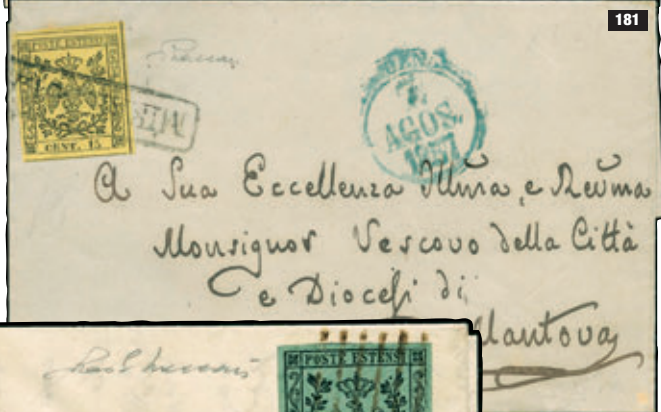 181
POSTE ESTENSI
CENT. 15
7.
AGOS.
A Sua Eccellenza Illma, e Revma
Monsignor Vescovo della Città
e Diocesi di
Mantova
POSTE ESTENSI